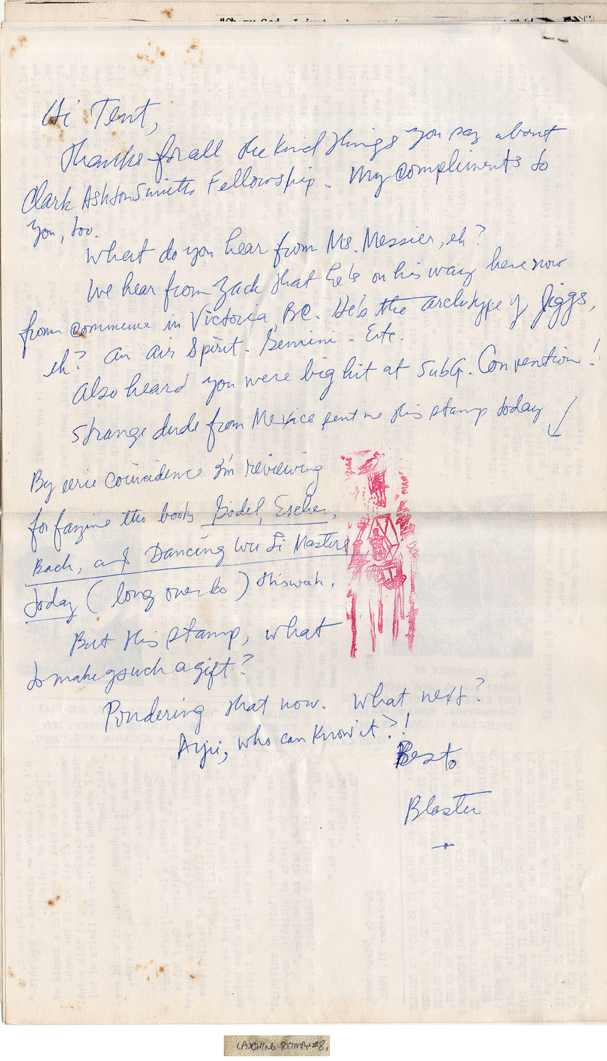 Hi Tent,
Thanks for all the kind things you say about
Clark Ashton Smith Fellowship. My compliments to
you, too.
What do you hear from Me. Messier, eh?
We hear from Zack that he's on his way here now
from commune in Victoria BC. He's the archetype of Jiggs,
eh? An air spirit. Gemini. Etc.
Also heard you were big hit at SubG. Convention!
Strange dude from Mexico sent me this stamp today
By eerie coincidence I'm reviewing
for fanzine two books Godel, Escher,
Bach, and Dancing Wu Li Masters
today (long over) this
But this stamp, what
to make of such a gift?
Pondering that now. What next?
who can know it?!
Best
Blaster
LAUGHING #8,